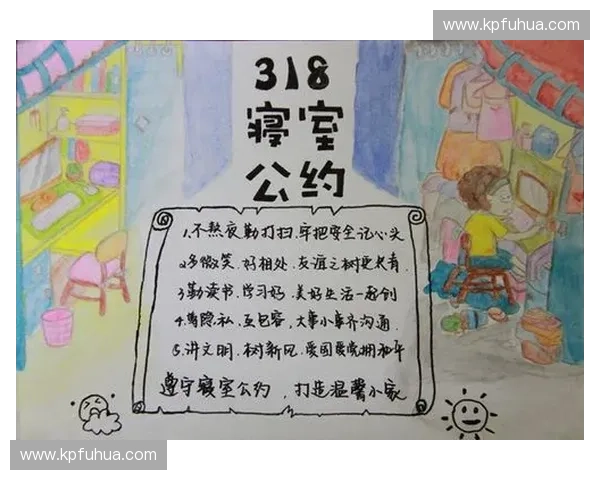 www.kpfuhua.com
318
寝室
公约
1.不熬夜.勤打扫.牢把安全记心头
2.多微笑.好相处.友谊之树更长青.
3.勤读书.学习好.美好生活一起创
4.尊隐私.互包容.大事小事齐沟通.
5.讲文明.树新风.爱国爱党拥和平
遵守寝室公约,打造温馨小家
www.kpfuhua.com